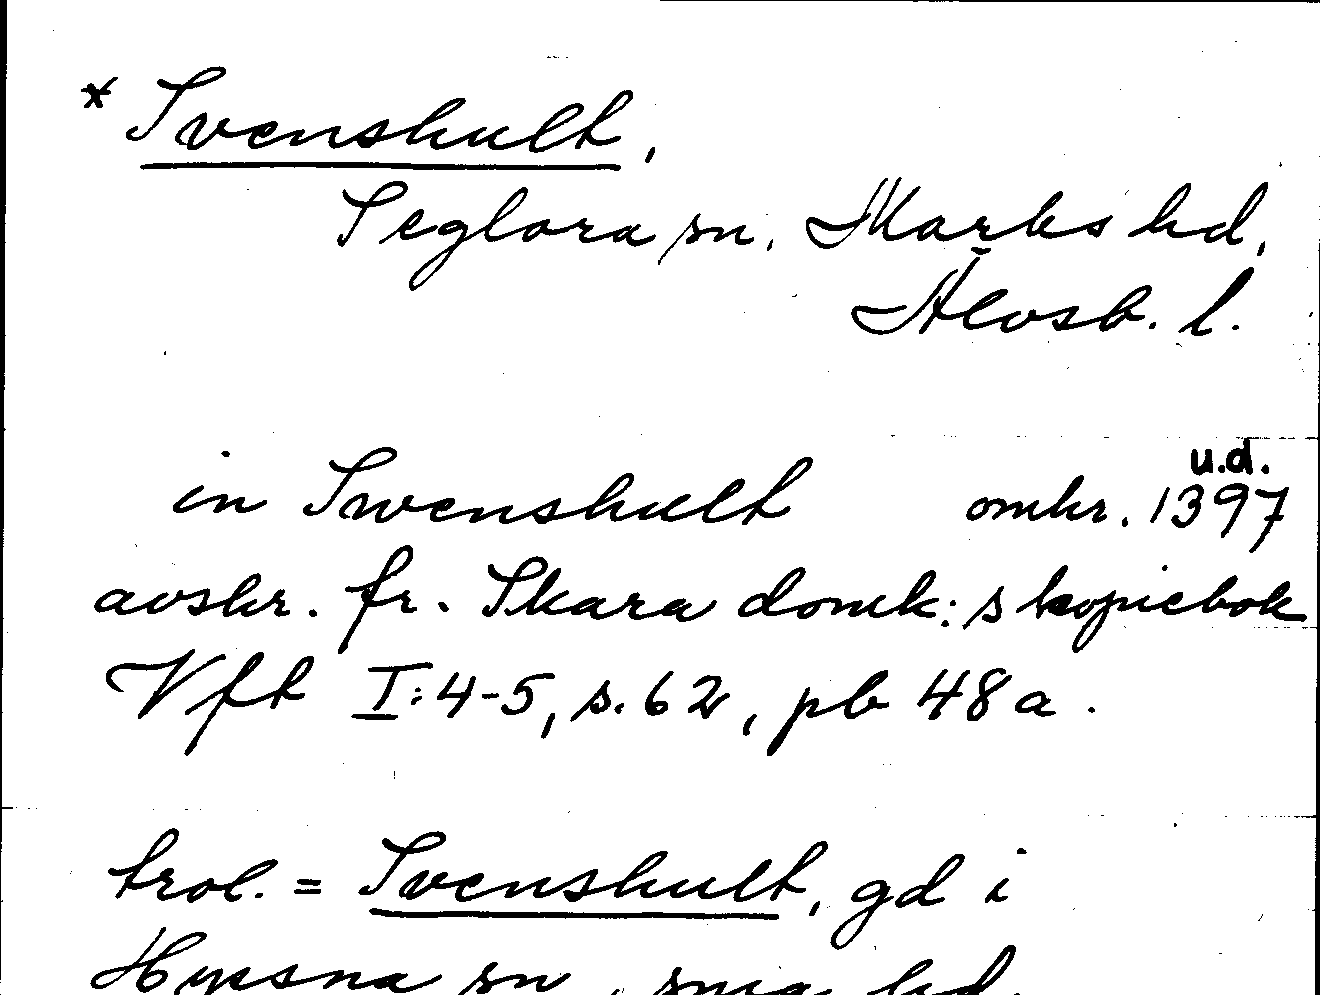 * Svenshult,
Seglora sn, Marks hd,
Älvsb. l.
u.d.
in Swenshult omkr. 1397
avskr. fr. Skara domk:s kopiebok
Vft I:4-5, s. 62, pb 48a.
trol. = Svenshult, gd i
Hyssna sn, sma hd.